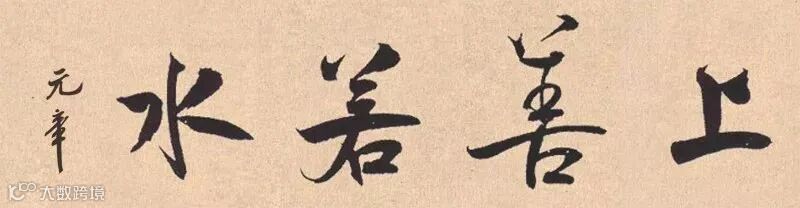 上善若水
元章
大数跨境